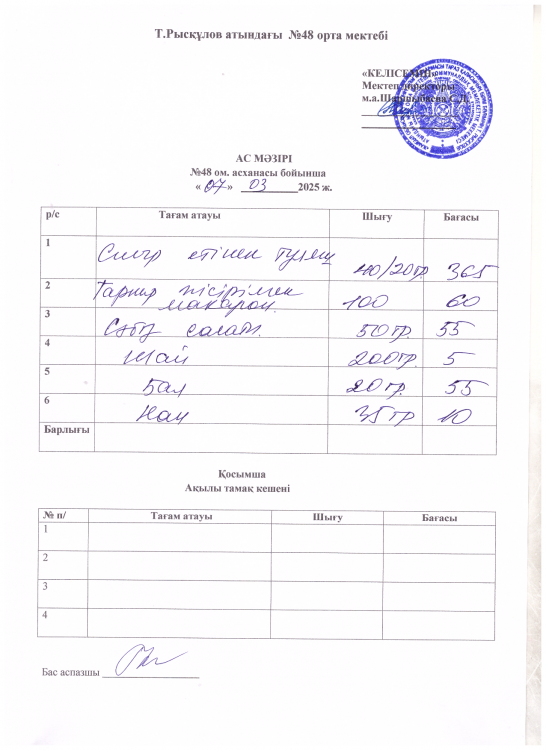 Т.Рысқұлов атындағы №48 орта мектебі
«КЕЛІСЕМІН»
Мектеп директоры
м.а.
АС МӘЗІРІ
№48 ом. асханасы бойынша
« 07 » 03 2025 ж.
р/с Тағам атауы Шығу Бағасы
1 Сиыр етінен гуляш 110/20гр 365
2 Гарнир пісірілген макарон. 100 60
3 Сәбіз салаты. 50гр. 55
4 Шай 200гр. 5
5 Бал 20гр. 55
6 Нан 35гр 10
Барлығы
Қосымша
Ақылы тамақ кешені
№ п/ Тағам атауы Шығу Бағасы
1
2
3
4
Бас аспазшы